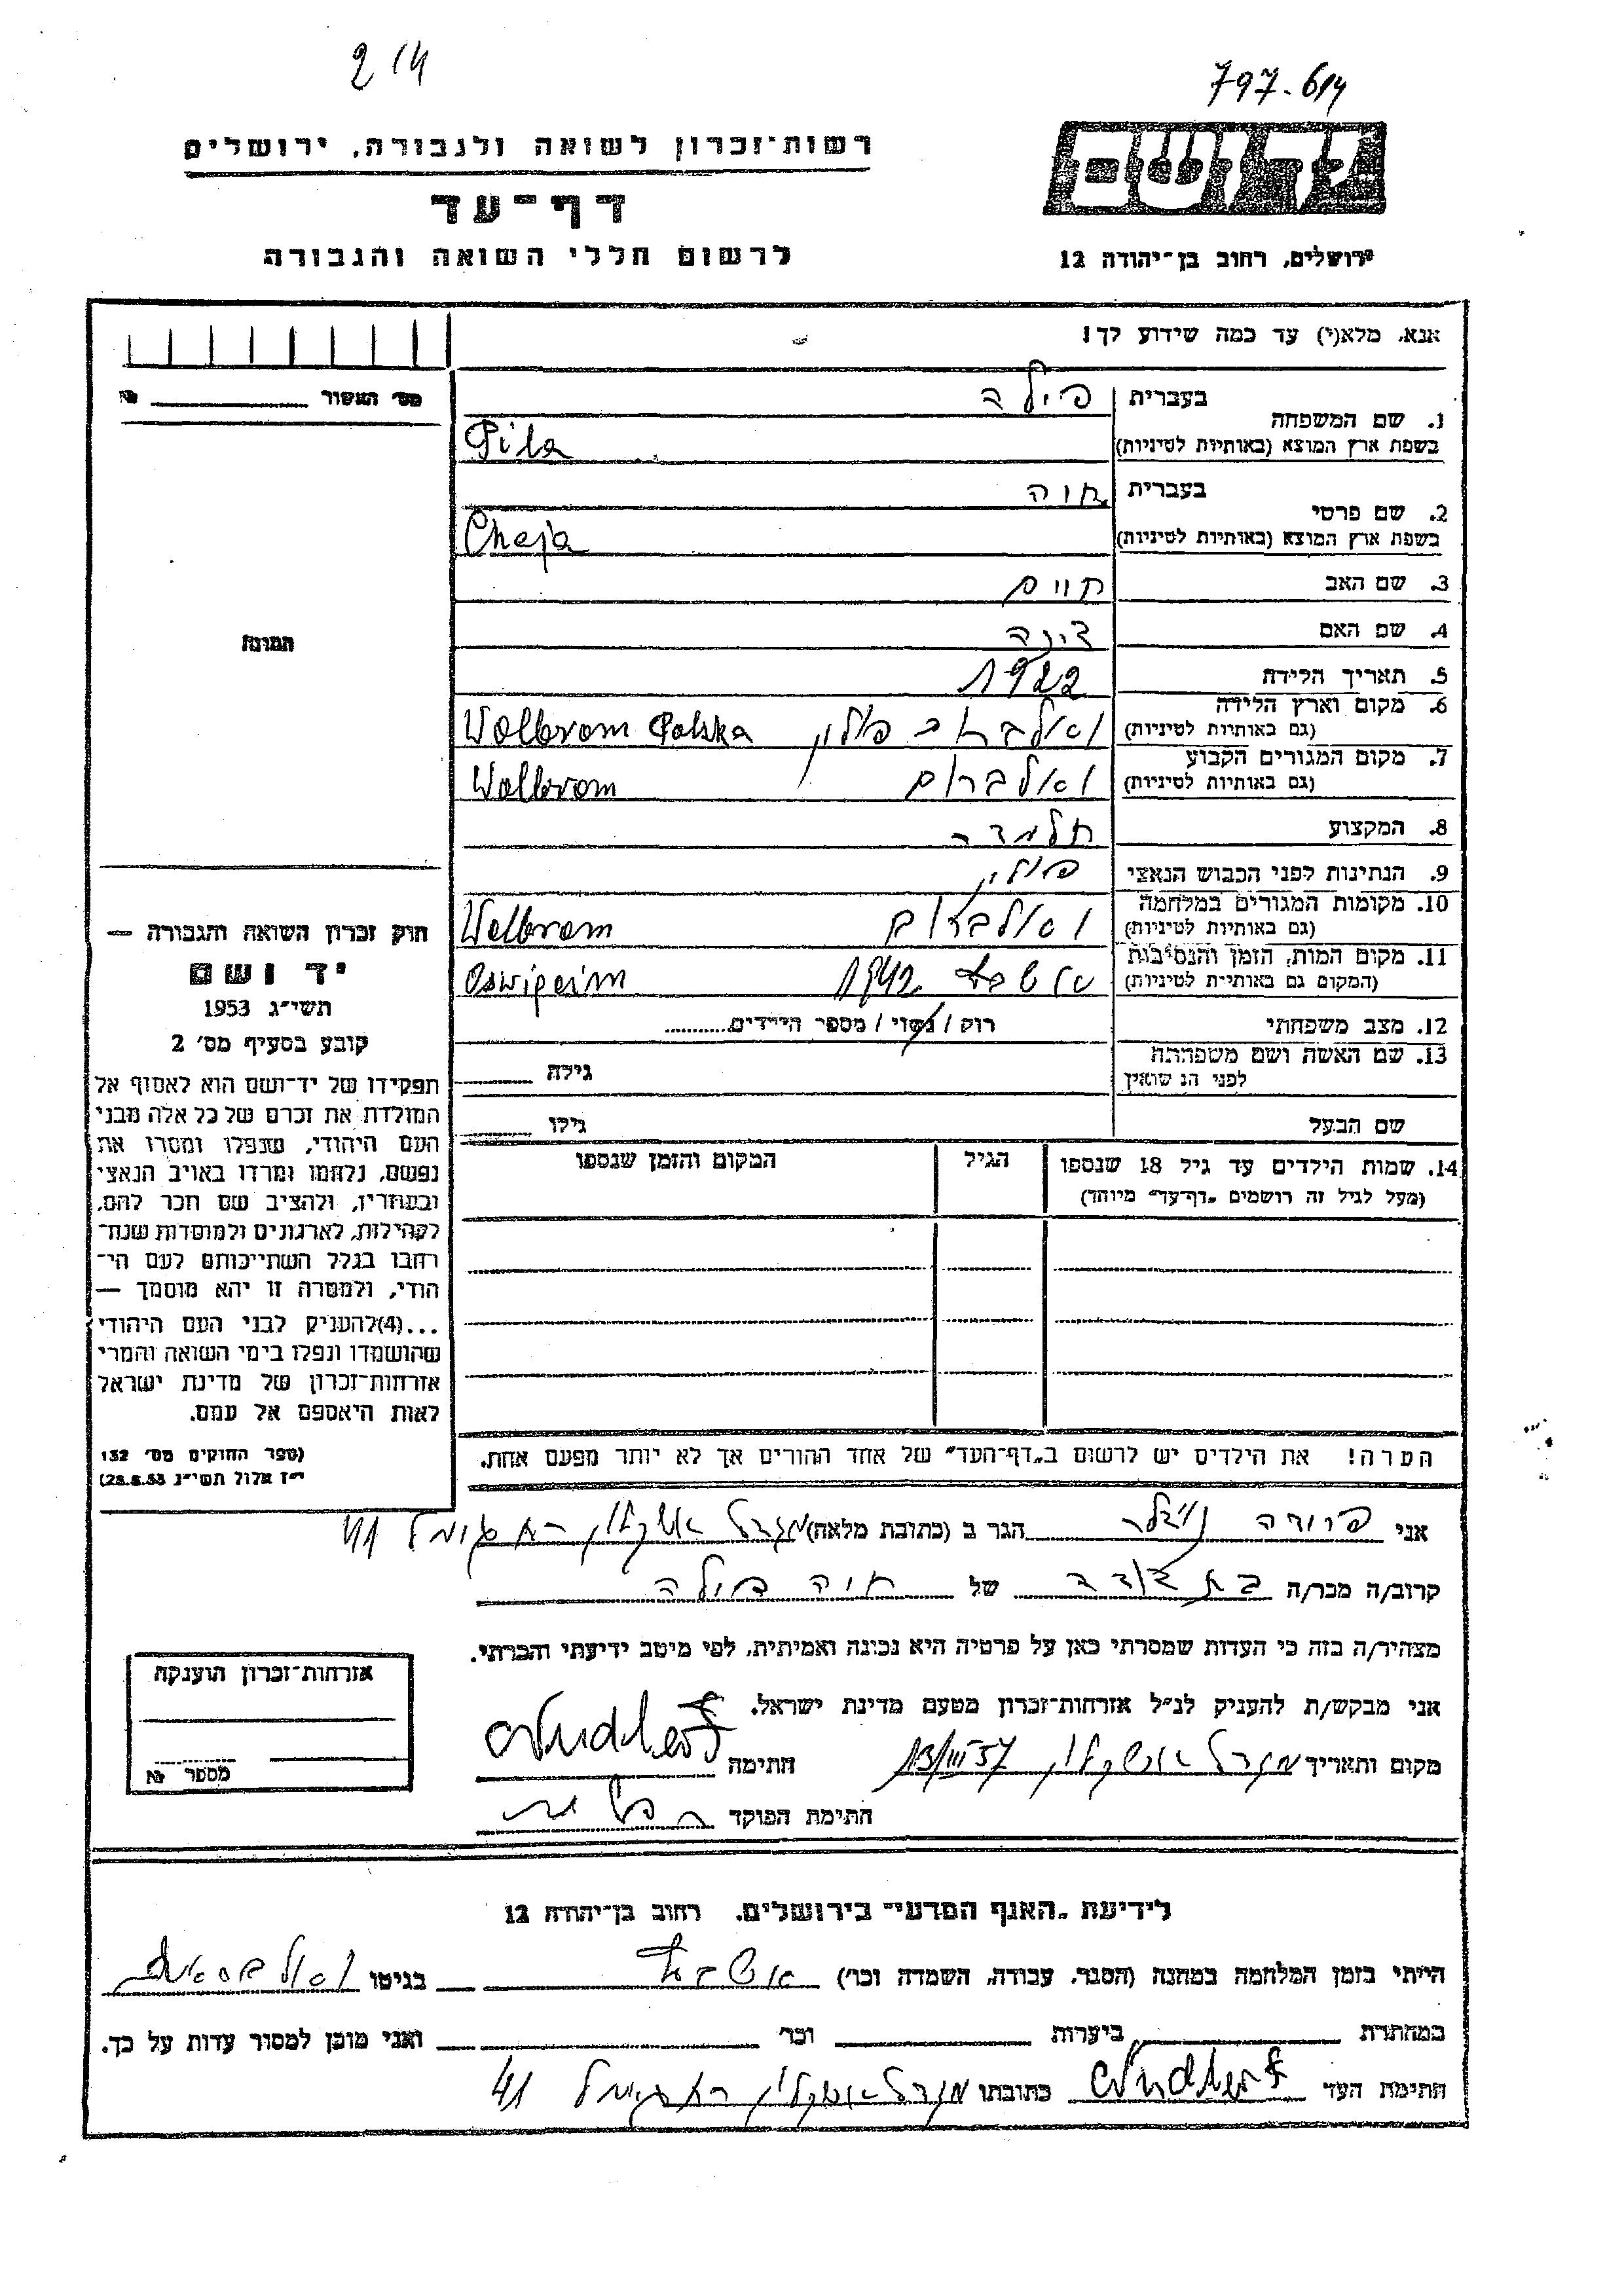 2/4
797-614
יד ושם
רשות־זכרון לשואה ולגבורה, ירושלים
דף־עד
לרשום חללי השואה והגבורה
ירושלים, רחוב בן־יהודה 12
אנא, מלא(י) עד כמה שידוע לך!
מס׳ האשור № 
1. שם המשפחה בעברית פילה
בשפת ארץ המוצא (באותיות לטיניות) Pila
2. שם פרטי בעברית חוה
בשפת ארץ המוצא (באותיות לטיניות) Chaja
3. שם האב חיים
4. שם האם דינה
התמונה
5. תאריך הלידה 1922
6. מקום וארץ הלידה
(גם באותיות לטיניות) פולין Wolbrom Polska
7. מקום המגורים הקבוע
(גם באותיות לטיניות) ואלברום Wolbrom
8. המקצוע
9. הנתינות לפני הכבוש הנאצי פולין
10. מקומות המגורים במלחמה
(גם באותיות לטיניות) ואלברום Wolbrom
11. מקום המות, הזמן והנסיבות
(המקום גם באותיות לטיניות) 1942 Oswipcim
12. מצב משפחתי רוק / נשוי / מספר הילדים
13. שם האשה ושם משפחתה
לפני הנשואין גילה
שם הבעל גילו
14. שמות הילדים עד גיל 18 שנספו הגיל המקום והזמן שנספו
(מעל לגיל זה רושמים „דף־עד״ מיוחד)
הערה! את הילדים יש לרשום ב„דף־העד״ של אחד ההורים אך לא יותר מפעם אחת.
חוק זכרון השואה והגבורה —
יד ושם
תשי״ג 1953
קובע בסעיף מס׳ 2
תפקידו של יד־ושם הוא לאסוף אל
המולדת את זכרם של כל אלה מבני
העם היהודי, שנפלו ומסרו את
נפשם, נלחמו ומרדו באויב הנאצי
ובעוזריו, ולהציב שם וזכר להם,
לקהילות, לארגונים ולמוסדות שנח־
רבו בגלל השתייכותם לעם הי־
הודי, ולמטרה זו יהא מוסמך —
...(4)להעניק לבני העם היהודי
שהושמדו ונפלו בימי השואה והמרי
אזרחות־זכרון של מדינת ישראל
לאות היאספם אל עמם.
(ספר החוקים מס׳ 132
י״ז אלול תשי״ג 28.8.53)
אני פרומה הגר ב (כתובת מלאה) מגדל אשקלון 41
קרוב/ה מכר/ה בת דודה של חיה פילה
מצהיר/ה בזה כי העדות שמסרתי כאן על פרטיה היא נכונה ואמיתית, לפי מיטב ידיעתי והכרתי.
אני מבקש/ת להעניק לנ״ל אזרחות־זכרון מטעם מדינת ישראל.
מקום ותאריך מגדל אשקלון 13/III 57 חתימה
חתימת הפוקד
אזרחות־זכרון הוענקה
מספר №
לידיעת „האגף המדעי״ בירושלים, רחוב בן־יהודה 12
הייתי בזמן המלחמה במחנה (הסגר, עבודה, השמדה וכו׳) בגיטו
במחתרת ביערות וכו׳ ואני מוכן למסור עדות על כך.
חתימת העד כתובתו מגדל אשקלון 41